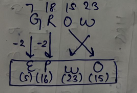 7 18 15 23
G R O W
-2 -2
E P W O
(5) (16) (23) (15)